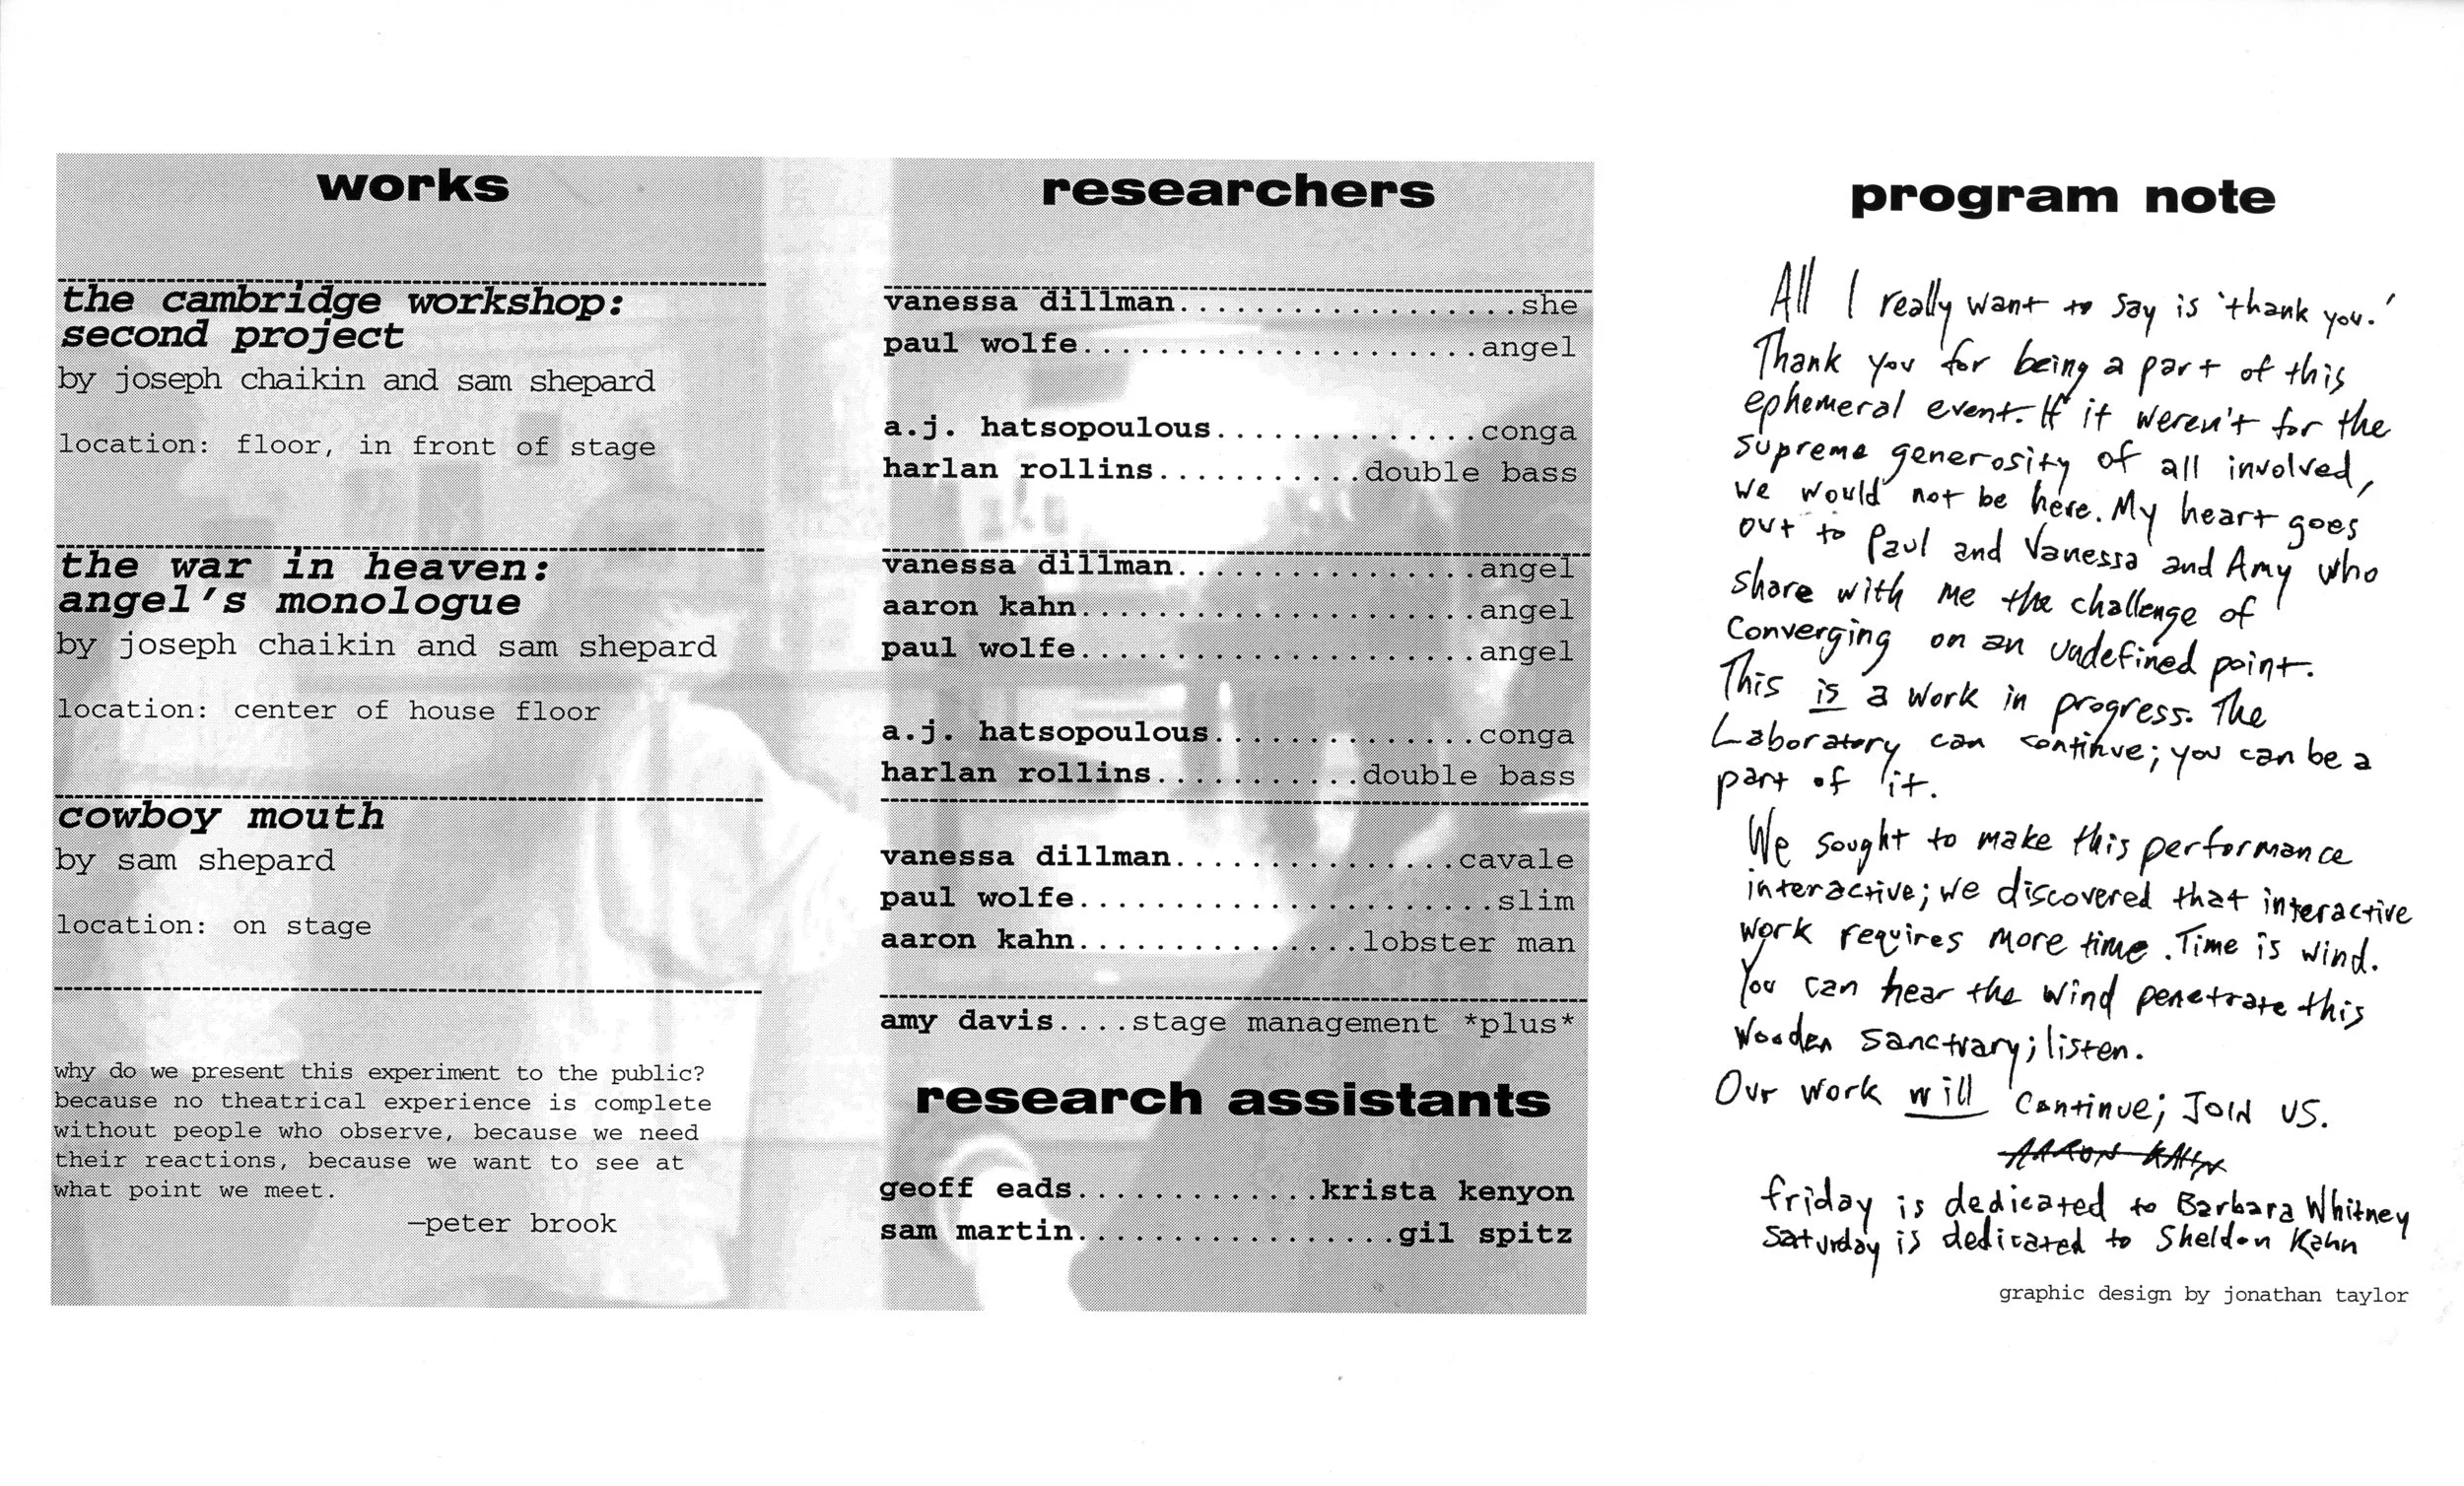 works
the cambridge workshop:
second project
by joseph chaikin and sam shepard
location: floor, in front of stage
the war in heaven:
angel's monologue
by joseph chaikin and sam shepard
location: center of house floor
cowboy mouth
by sam shepard
location: on stage
why do we present this experiment to the public?
because no theatrical experience is complete
without people who observe, because we need
their reactions, because we want to see at
what point we meet.
—peter brook
researchers
vanessa dillman..................she
paul wolfe.....................angel
a.j. hatsopoulous..............conga
harlan rollins...........double bass
vanessa dillman................angel
aaron kahn.....................angel
paul wolfe.....................angel
a.j. hatsopoulous..............conga
harlan rollins...........double bass
vanessa dillman...............cavale
paul wolfe......................slim
aaron kahn...............lobster man
amy davis....stage management *plus*
research assistants
geoff eads.............krista kenyon
sam martin.................gil spitz
program note
All I really want to say is 'thank you.'
Thank you for being a part of this
ephemeral event. If it weren't for the
supreme generosity of all involved,
we would not be here. My heart goes
out to Paul and Vanessa and Amy who
share with me the challenge of
converging on an undefined point.
This is a work in progress. The
Laboratory can continue; you can be a
part of it.
We sought to make this performance
interactive; we discovered that interactive
work requires more time. Time is wind.
You can hear the wind penetrate this
wooden sanctuary; listen.
Our work will continue; JOIN US.
AARON KAHN
friday is dedicated to Barbara Whitney
saturday is dedicated to Sheldon Kahn
graphic design by jonathan taylor